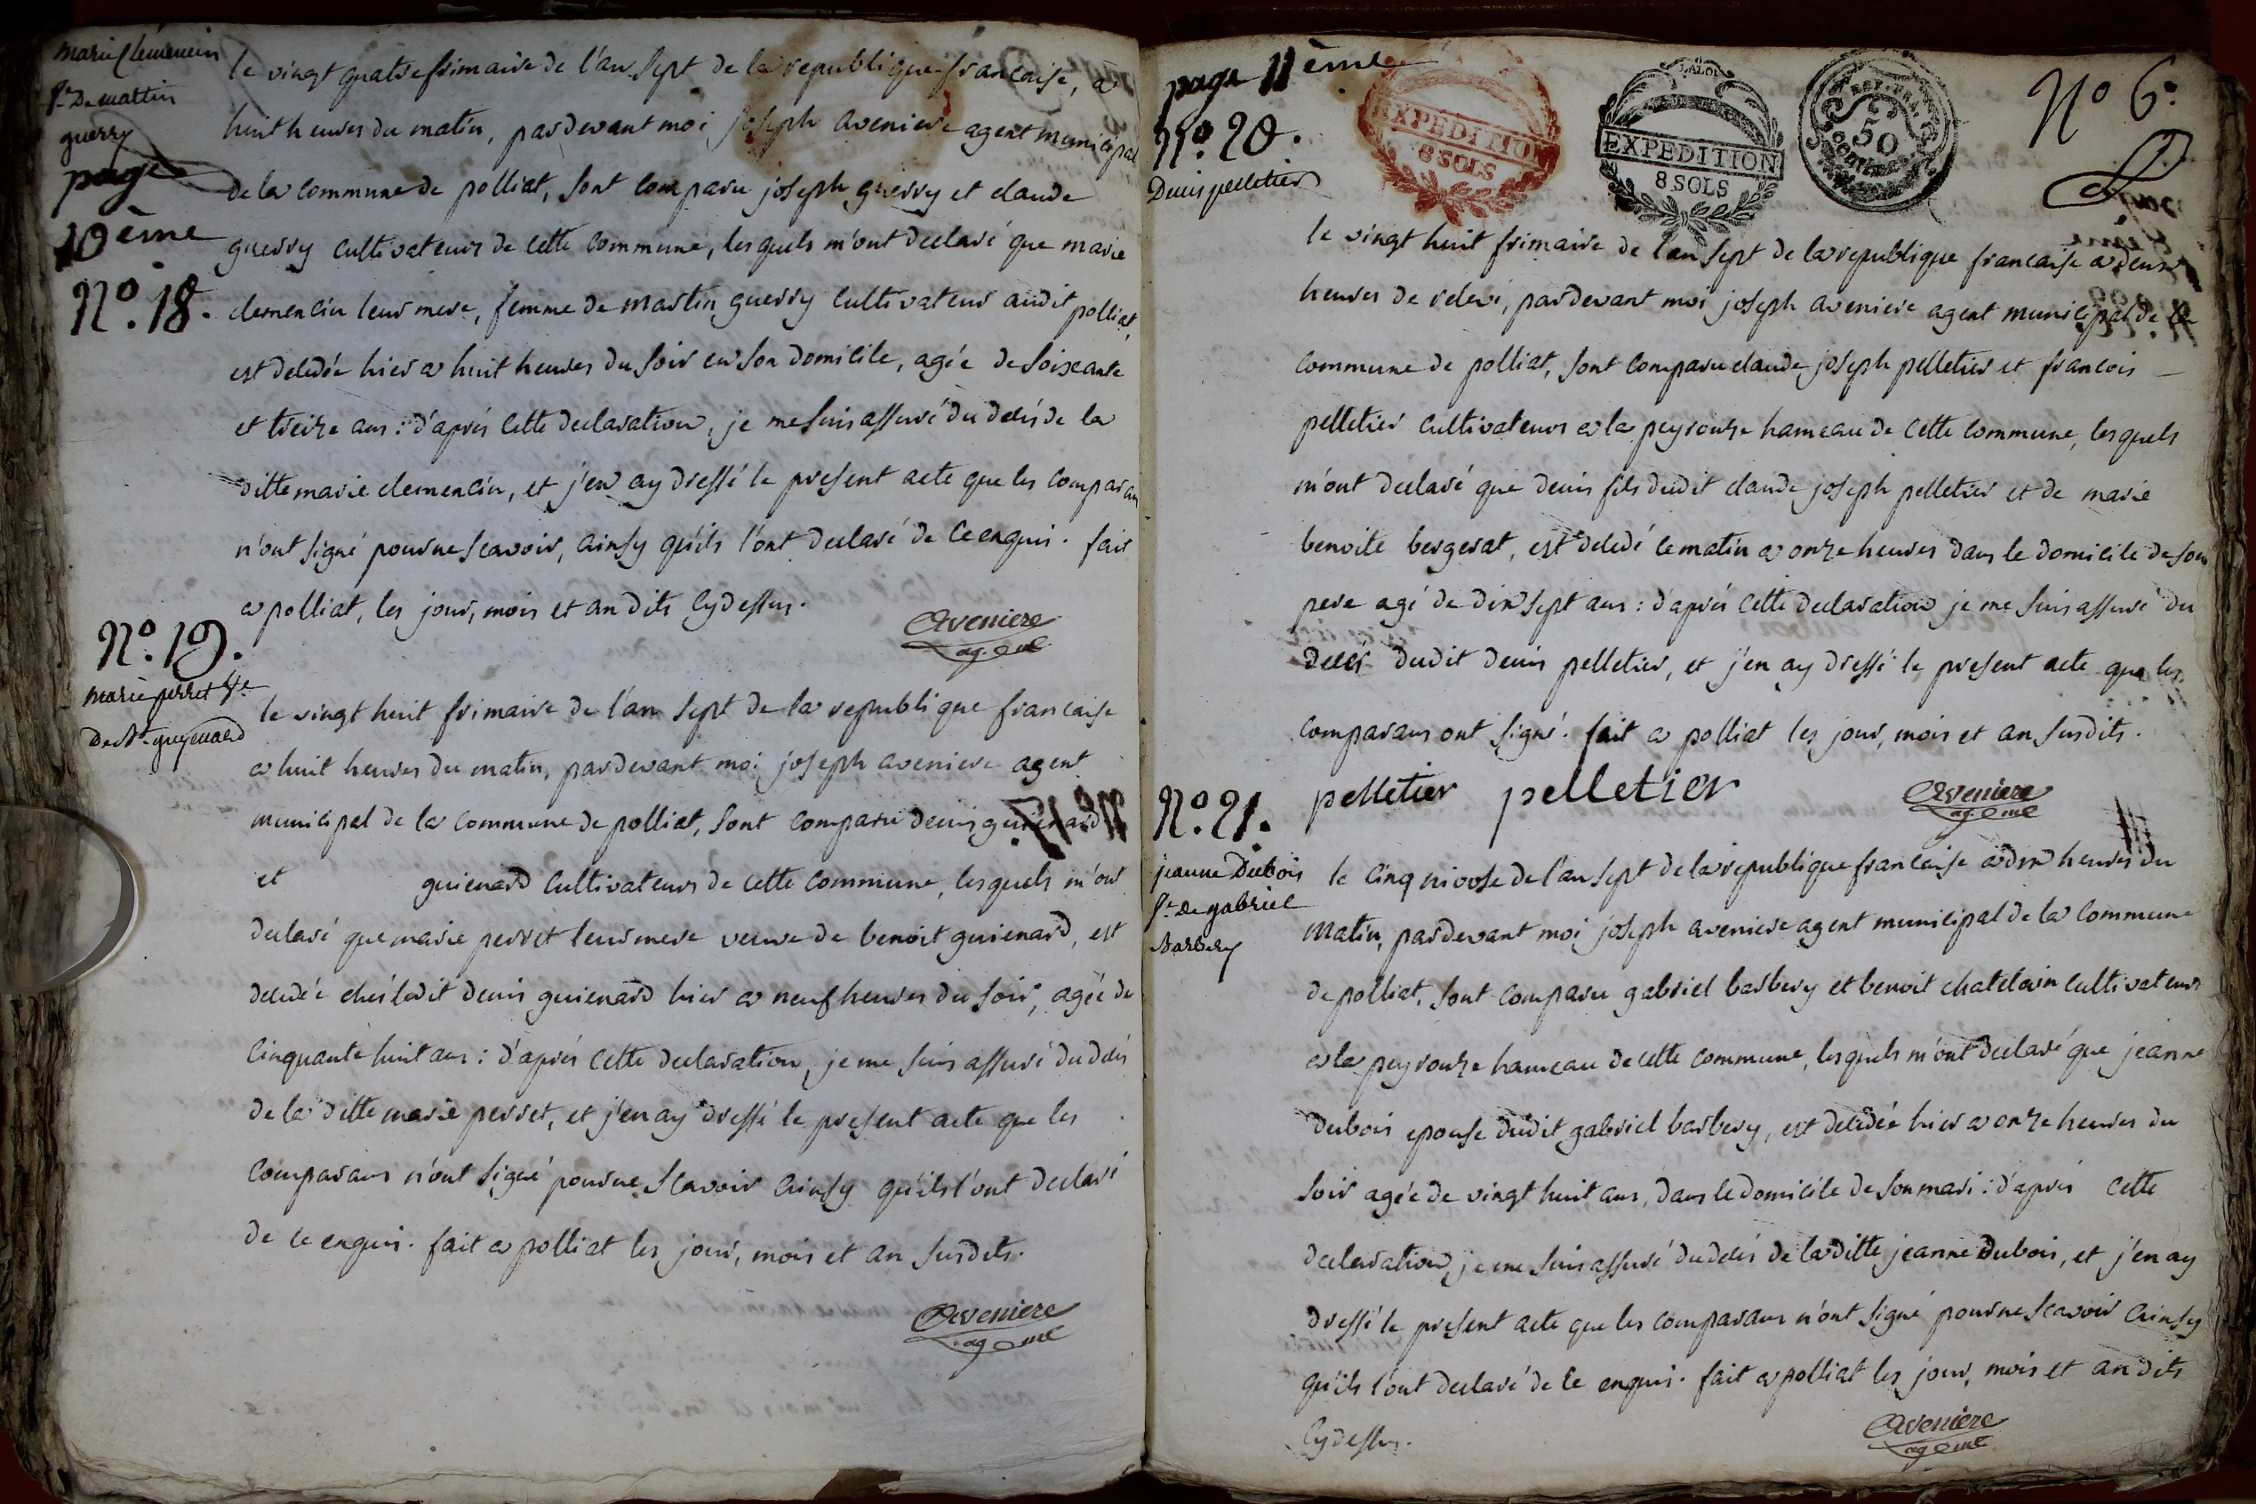 marie Clémencin
fe. De martin
guerry
page
10ème
N°. 18.
le vingt quatre frimaire de l'an sept de la republique francaise, a
huit heures du matin, pardevant moi joseph aveniere agent municipal
de la commune de polliat, sont comparu joseph guerry et claude
guerry cultivateurs de cette commune, lesquels m'ont declaré que marie
clemencin leur mere, femme de martin guerry cultivateur audit polliat,
est decedée hier a huit heures du soir en son domicile, agée de soixante
et treize ans : d'aprés cette declaration, je me suis assuré du decés de la
ditte marie clemencin, et j'en ay dressé le present acte que les comparans
n'ont signé pour ne scavoir, ainsy qu'ils l'ont declaré de ce enquis. fait
a polliat, les jour, mois et an dits cy dessus.
Aveniere
ag. mal
N°. 19.
marie perret Ve
De Bt. guyenard
le vingt huit frimaire de l'an sept de la republique francaise
a huit heures du matin, pardevant moi joseph aveniere agent
municipal de la commune de polliat, sont comparu denis guienard
et guienard cultivateurs de cette commune, lesquels m'ont
declaré que marie perret leur mere veuve de benoit guienard, est
decedée chés ledit denis guienard hier a neuf heures du soir, agée de
cinquante huit ans : d'aprés cette declaration, je me suis assuré du decés
de la ditte marie perret, et j'en ay dressé le present acte que les
comparans n'ont signé pour ne scavoir ainsy qu'ils l'ont declaré
de ce enquis. fait a polliat les jour, mois et an susdits.
Aveniere
ag. mal
page 11ème
N°. 20.
Denis pelletier
LA LOI
EXPEDITION
8 SOLS
EXPEDITION
8 SOLS
REP. FRA.
50
centimes
N° 6.
le vingt huit frimaire de l'an sept de la republique francaise a deux
heures de relevé, pardevant moi joseph aveniere agent municipal de la
commune de polliat, sont comparu claude joseph pelletier et francois
pelletier cultivateurs a la peyrouze hameau de cette commune, lesquels
m'ont declaré que denis fils dudit claude joseph pelletier et de marie
benoite bergerat, est decedé ce matin a onze heures dans le domicile de son
pere agé de dix sept ans : d'aprés cette declaration je me suis assuré du
decés dudit denis pelletier, et j'en ay dressé le present acte que les
comparans ont signé. fait a polliat les jour, mois et an susdits.
pelletier pelletier Aveniere
ag. mal
N°. 21.
jeanne Dubois
fe. de gabriel
Barbery
le cinq nivose de l'an sept de la republique francaise a dix heures du
matin, pardevant moi joseph aveniere agent municipal de la commune
de polliat, sont comparu gabriel barbery et benoit chatelain cultivateurs
a la peyrouze hameau de cette commune, lesquels m'ont declaré que jeanne
dubois epouse dudit gabriel barbery, est decedée hier a onze heures du
soir agée de vingt huit ans, dans le domicile de son mari : d'aprés cette
declaration, je me suis assuré du decés de la ditte jeanne Dubois, et j'en ay
dressé le present acte que les comparans n'ont signé pour ne scavoir ainsy
qu'ils l'ont declaré de ce enquis. fait a polliat les jour, mois et an dits
cy dessus.
Aveniere
ag. mal